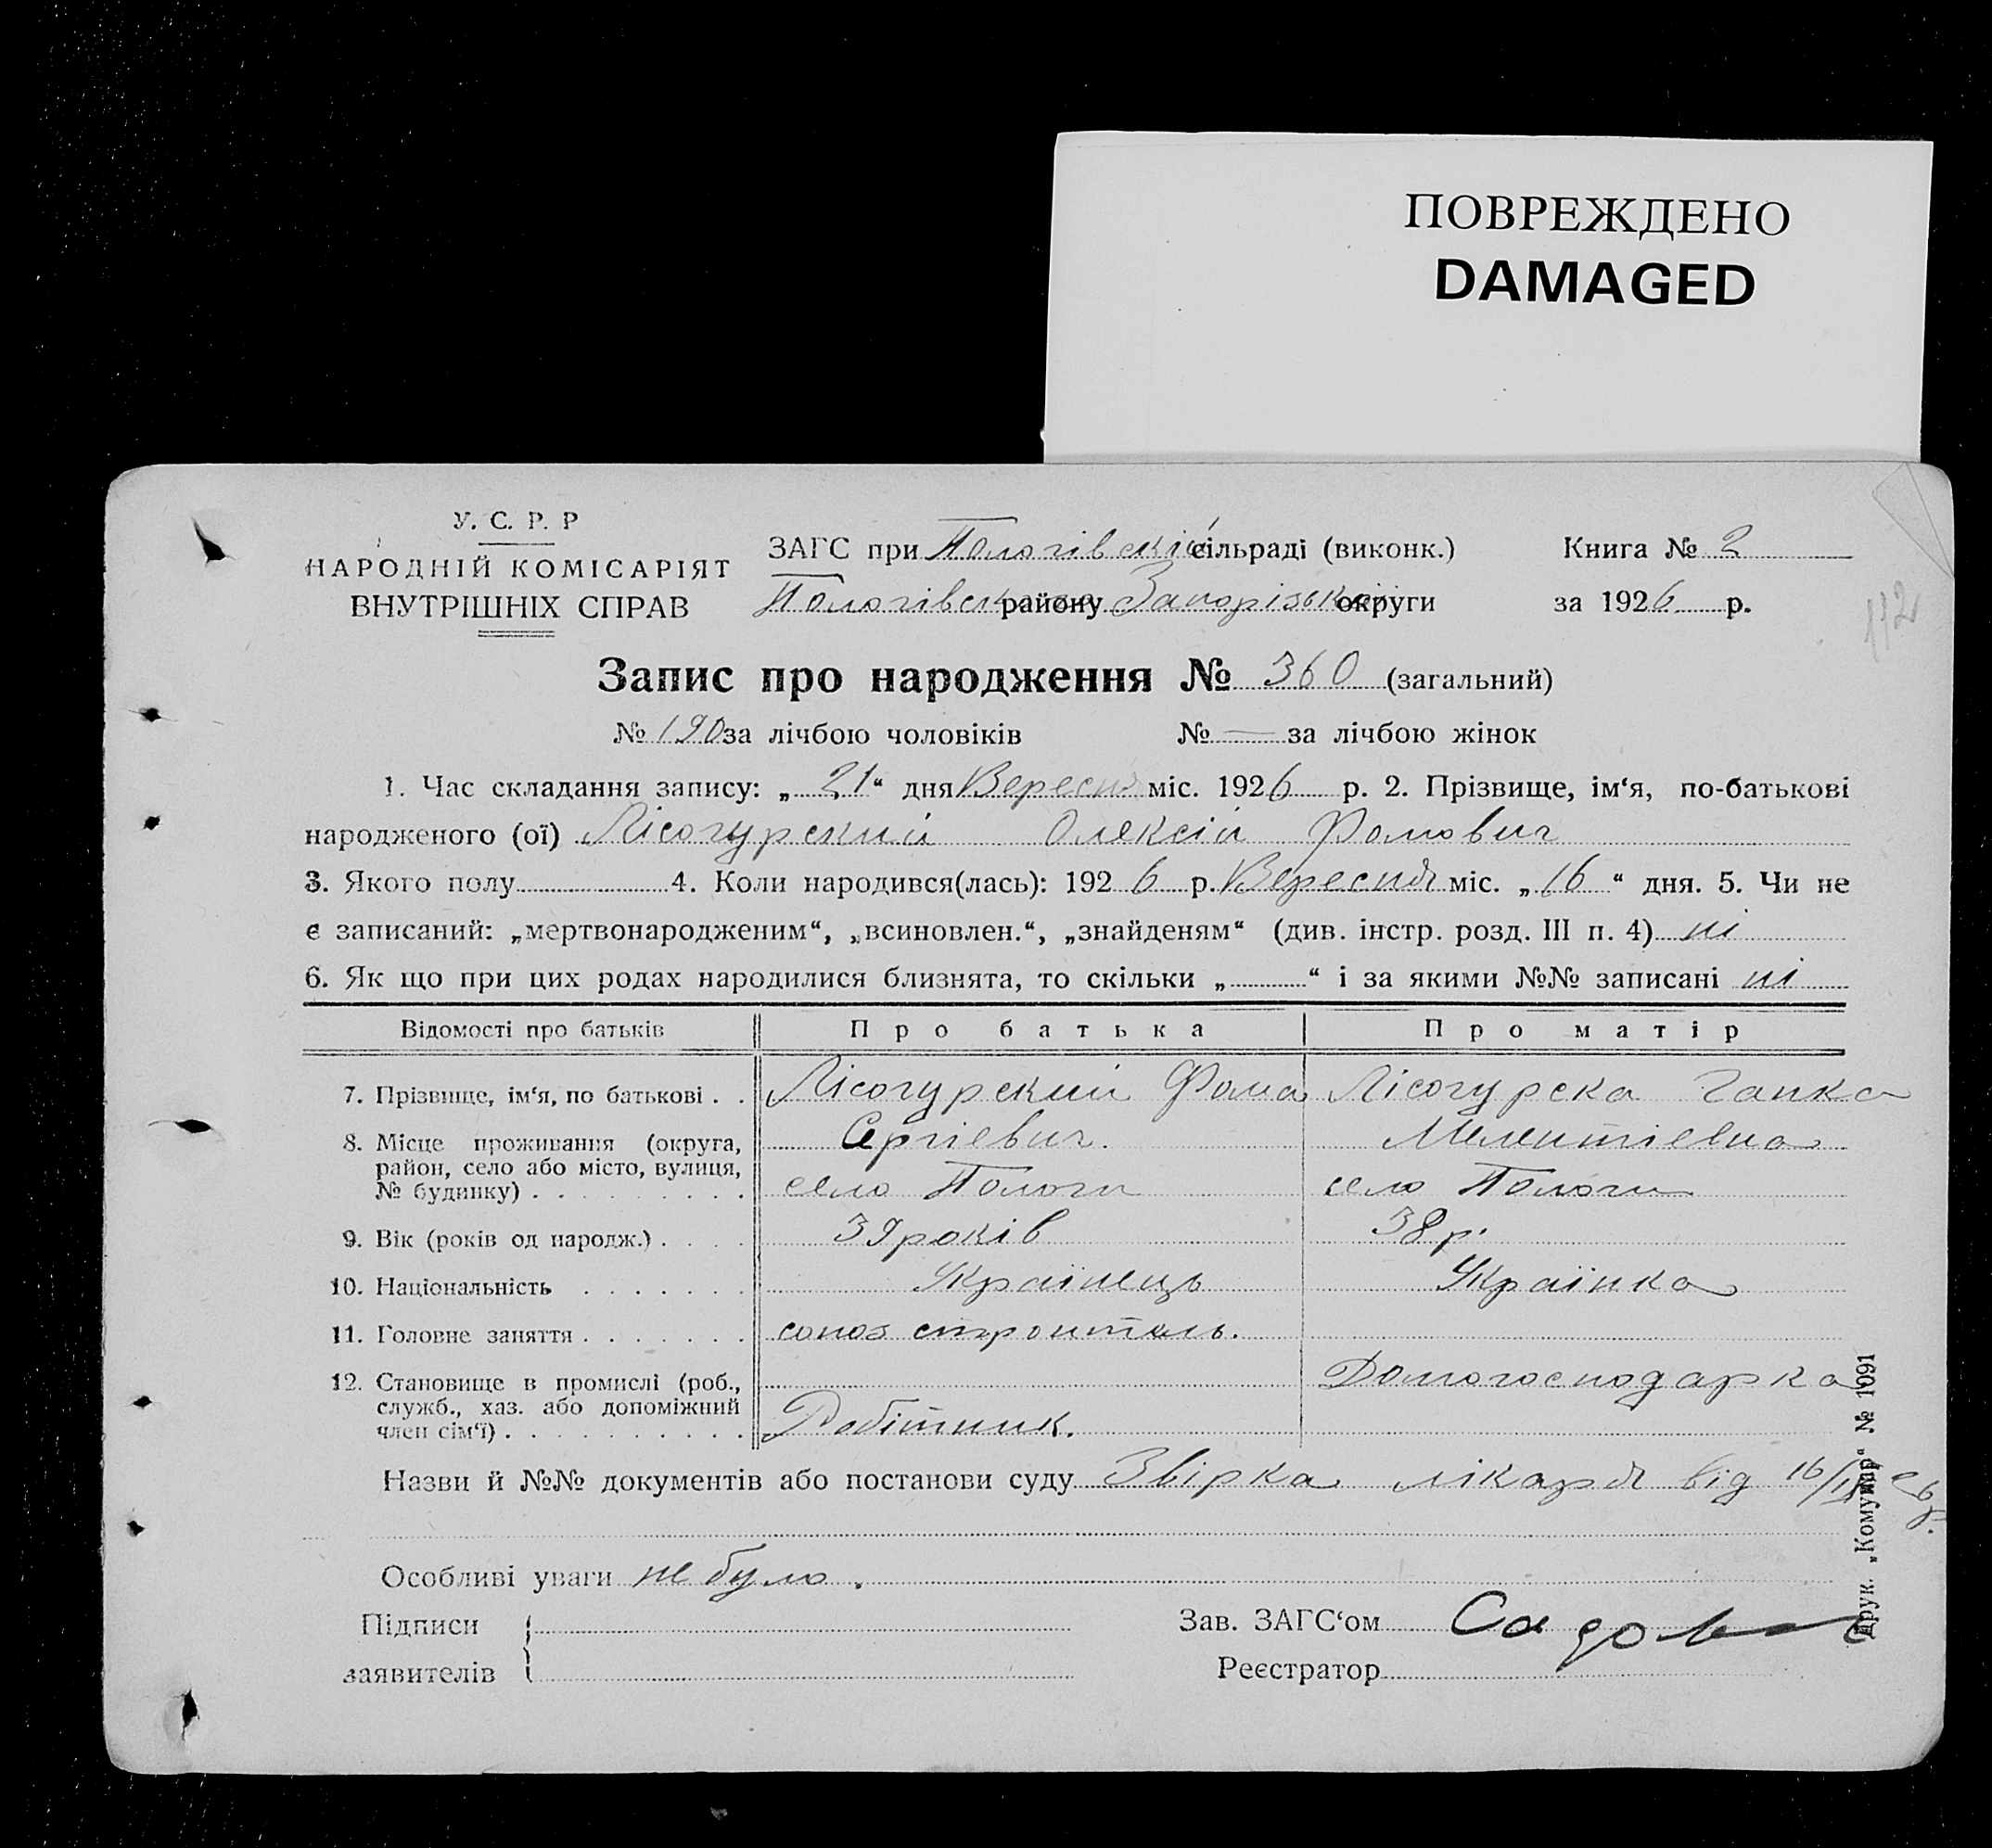 ПОВРЕЖДЕНО
DAMAGED
У. С. Р. Р
НАРОДНІЙ КОМІСАРІЯТ
ВНУТРІШНІХ СПРАВ
ЗАГС при Пологівській сільраді (виконк.) Книга № 2
Пологівського району Запорізької округи за 1926 р.
112
Запис про народження № 360 (загальний)
№ 190 за лічбою чоловіків № — за лічбою жінок
1. Час складання запису: „21“ дня Вересня міс. 1926 р. 2. Прізвище, ім‘я, по-батькові
народженого (ої) Лісогурский Олексій Фомович
3. Якого полу 4. Коли народився(лась): 1926 р. Вересня міс. „16“ дня. 5. Чи не
є записаний: „мертвонародженим“, „всиновлен.“, „знайденям“ (див. інстр. розд. III п. 4) ні
6. Як що при цих родах народилися близнята, то скільки „ “ і за якими №№ записані ні
Відомості про батьків Про батька Про матір
7. Прізвище, ім‘я, по батькові . . Лісогурский Фома Лісогурска Гапка
Сергієвич. Мелентієвна
8. Місце проживання (округа,
район, село або місто, вулиця,
№ будинку) . . . . . . . . . село Пологи село Пологи
9. Вік (років од народж.) . . . . 39 років 38 р.
10. Національність . . . . . . . Українець Українка
11. Головне заняття . . . . . . . союз строитель.
12. Становище в промислі (роб.,
служб., хаз. або допоміжний
член сім‘ї) . . . . . . . . . . Робітник. Домогосподарка
Назви й №№ документів або постанови суду Звірка лікаря від 16/IX 26 р.
Особливі уваги не було.
Підписи
заявителів
Зав. ЗАГС‘ом Садов
Реєстратор
Друк. „Комунар“ № 1091